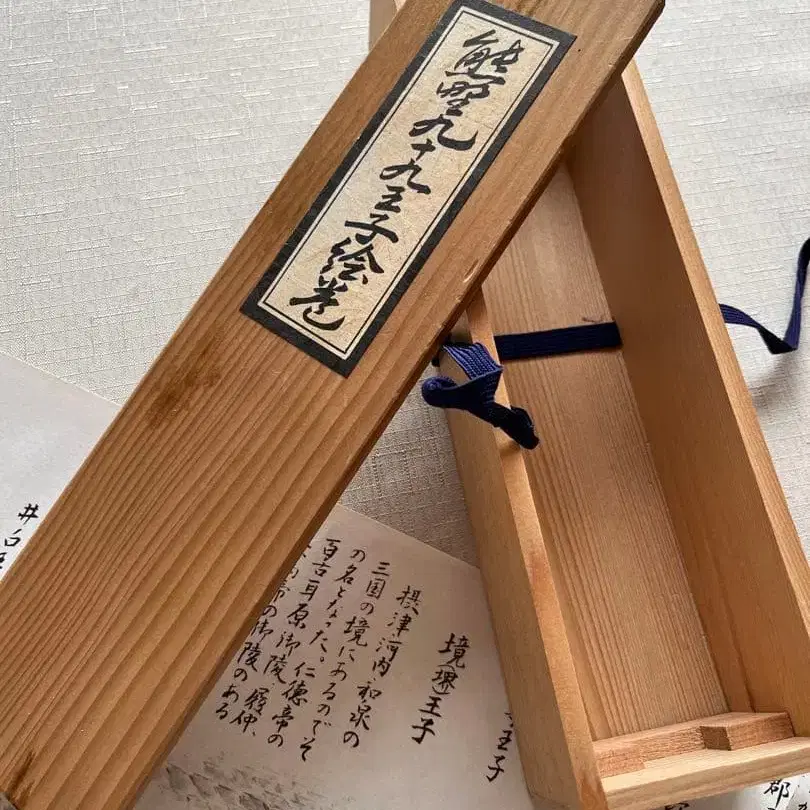 熊野九十九王子絵巻
王子
境(堺)王子
摂津河内和泉の
三国の境にあるのでそ
の名となった。仁徳帝の
百舌耳原御陵 履仲、
の御陵のある
井
郡